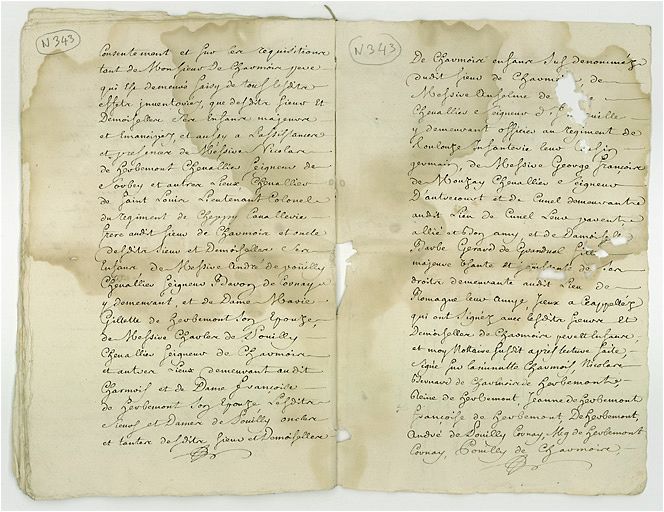 N 343
Consentement et sur les requisitions
tant de Monsieur de Charmois pere
qui est demeuré saisy de tous lesdits
effets inventoriez, que desdits sieurs et
Demoiselles ses enfans majeurs
et Emancipez et aussy a l'assistance
et presence de Messire Nicolas
de Herbemont Chevallier seigneur de
et autres lieux Chevallier
de Saint Louis Lieutenant Colonel
du regiment de Cavallerie
frere audit sieur de Charmois et oncle
desdits sieurs et Demoiselles ses
Enfans de Messire André de Pouilly
Chevallier seigneur de Cornay
y demeurant et de Dame Marie
Gillette de herbemont son Epouze,
de Messire Charles de Pouilly
Chevallier seigneur de Charmois
et autres lieux demeurant audit
Charmois et de Dame francoise
de herbemont son Epouze lesdits
sieurs et Dames de Pouilly oncles
et tantes desdits sieurs et Demoiselles
N 343
De Charmois enfans sus denommez
dudit sieur de Charmois de
Messire Anselme de
Chevallier seigneur
y demeurant officier au regiment de
Infanterie leur cousin
germain, de Messire George francois
de Mouzay Chevallier seigneur
D'autrecourt et de Cunel demeurant
audit lieu de Cunel Leur parent
allié et bon amy et de Damoiselle
Barbe Gerard de
majeure et de ses
droits demeurante audit lieu de
Romagne leur amye a
qui ont signez avec lesdits sieurs et
Demoiselles de Charmois pere et enfans
et moy Notaire susdit apres lecture faite,
signé sur la minutte Charmois Nicolas
Bernard de Charmois de herbemont
Reine de herbemont Jeanne de herbemont
francoise de herbemont De herbemont,
André de Pouilly Cornay, M.g de herbemont
Cornay, Pouilly de Charmois